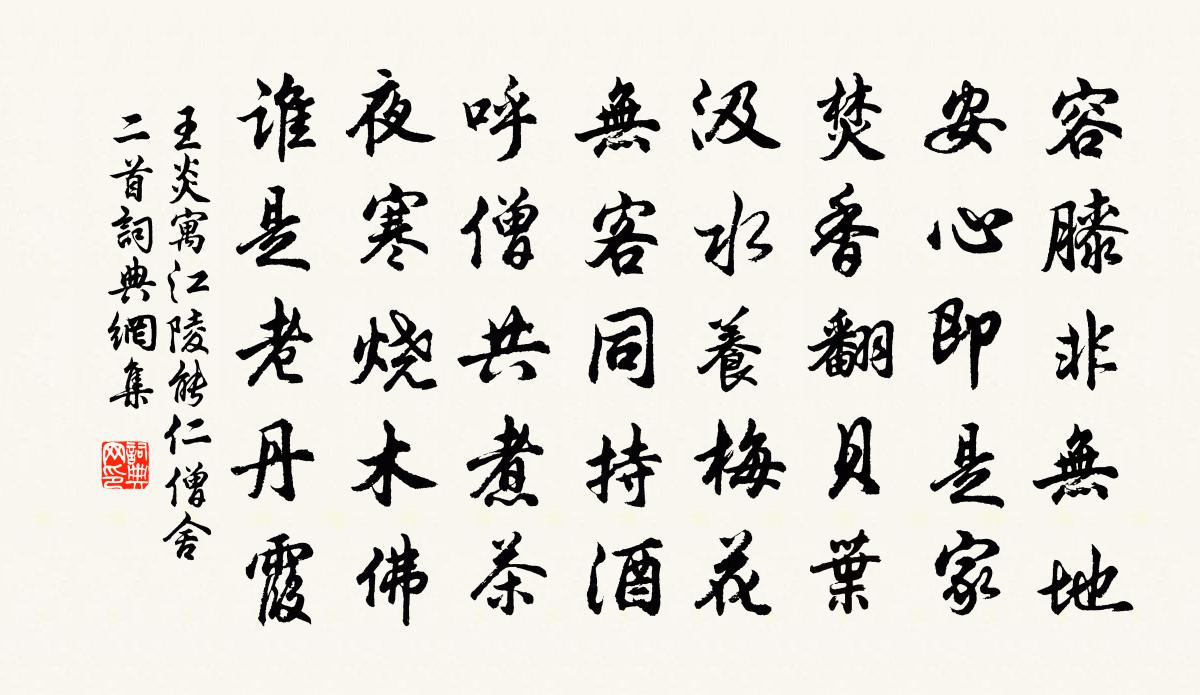 容膝非無地
安心即是家
焚香翻貝葉
汲水養梅花
無客同持酒
呼僧共煮茶
夜寒烧木佛
谁是老丹霞
王炎寓江陵能仁僧舍
二首詞典網集
詞典网印